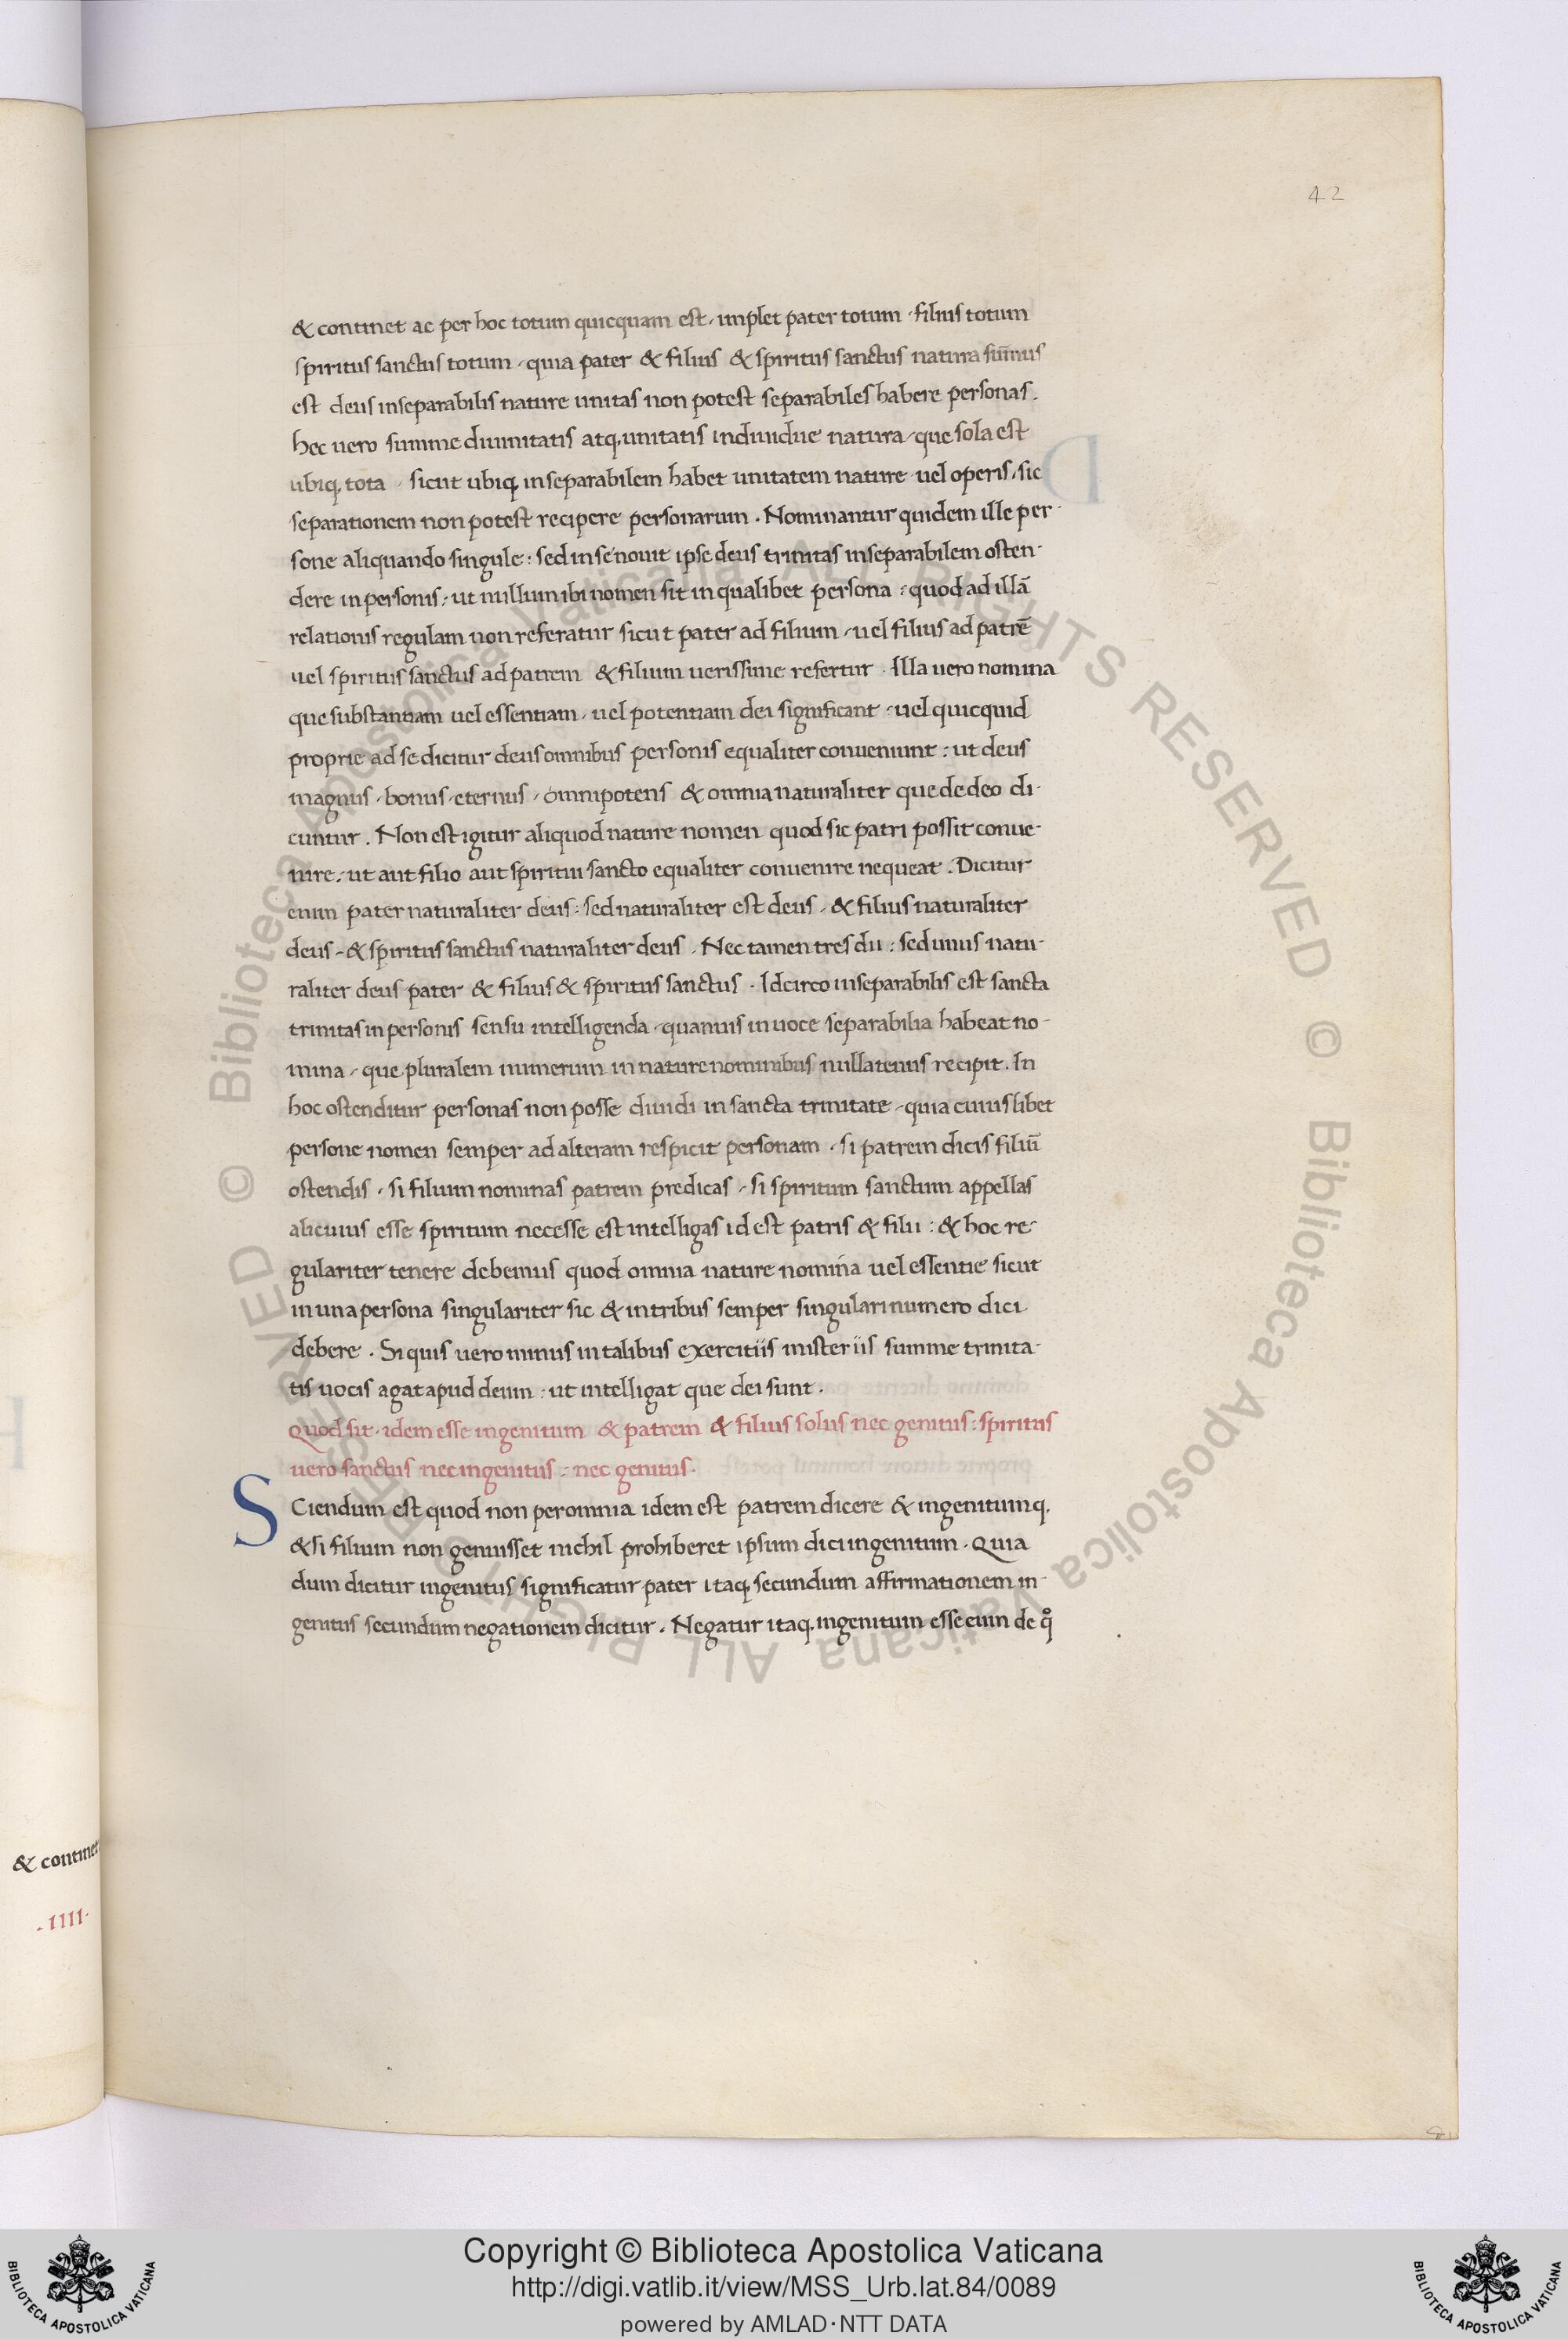 42
& continet ac per hoc totum quicquam est, implet pater totum · filius totum
spiritus sanctus totum · quia pater & filius & spiritus sanctus natura sum̄us
est deus inseparabilis nature unitas non potest separabiles habere personas.
hec uero summe diuinitatis atq, unitatis indiuidue natura, que sola est
ubiq, tota · sicut ubiq, inseparabilem habet unitatem nature uel operis, sic
separationem non potest recipere personarum . Nominantur quidem ille per-
sone aliquando singule : sed in se nouit ipse deus trinitas inseparabilem osten-
dere in personis, ut nullum ibi nomen sit in qualibet persona : quod ad illā
relationis regulam non referatur sicut pater ad filium, uel filius ad patrē
uel spiritus sanctus ad patrem & filium uerissime refertur . Illa uero nomina
que substantiam uel essentiam, uel potentiam dei significant, uel quicquid
proprie ad se dicitur deus omnibus personis equaliter conueniunt : ut deus
magnus, bonus, eternus, omnipotens & omnia naturaliter que de deo di-
cuntur . Non est igitur aliquod nature nomen quod sic patri possit conue-
nire, ut aut filio aut spiritui sancto equaliter conuenire nequeat . Dicitur
enim pater naturaliter deus : sed naturaliter est deus, & filius naturaliter
deus, & spiritus sanctus naturaliter deus . Nec tamen tres dii : sed unus natu-
raliter deus pater & filius & spiritus sanctus . Idcirco inseparabilis est sancta
trinitas in personis sensu intelligenda, quamuis in uoce separabilia habeat no-
mina, que pluralem numerum in nature nominibus nullatenus recipit. In
hoc ostenditur personas non posse diuidi in sancta trinitate, quia cuiuslibet
persone nomen semper ad alteram respicit personam . si patrem dicis filiū
ostendis . si filium nominas patrem predicas, si spiritum sanctum appellas
alicuius esse spiritum necesse est intelligas id est patris & filii : & hoc re-
gulariter tenere debemus quod omnia nature nomina uel essentie sicut
in una persona singulariter sic & in tribus semper singulari numero dici
debere . Si quis uero minus in talibus exercitiis misteriis summe trinita-
tis uocis agat apud deum : ut intelligat que dei sunt .
Quod sit idem esse ingenitum & patrem & filius solus nec genitus : spiritus
uero sanctus nec ingenitus : nec genitus.
SCiendum est quod non per omnia idem est patrem dicere & ingenitum q,
& si filium non genuisset nichil prohiberet ipsum dici ingenitum . Quia
dum dicitur ingenitus significatur pater itaq, secundum affirmationem in-
genitus secundum negationem dicitur . Negatur itaq, ingenitum esse eum de q̊
& continet
.IIII.
Copyright © Biblioteca Apostolica Vaticana
http://digi.vatlib.it/view/MSS_Urb.lat.84/0089
powered by AMLAD·NTT DATA
BIBLIOTECA APOSTOLICA VATICANA
BIBLIOTECA APOSTOLICA VATICANA
© Biblioteca Apostolica Vaticana ALL RIGHTS RESERVED
© Biblioteca Apostolica Vaticana ALL RIGHTS RESERVED